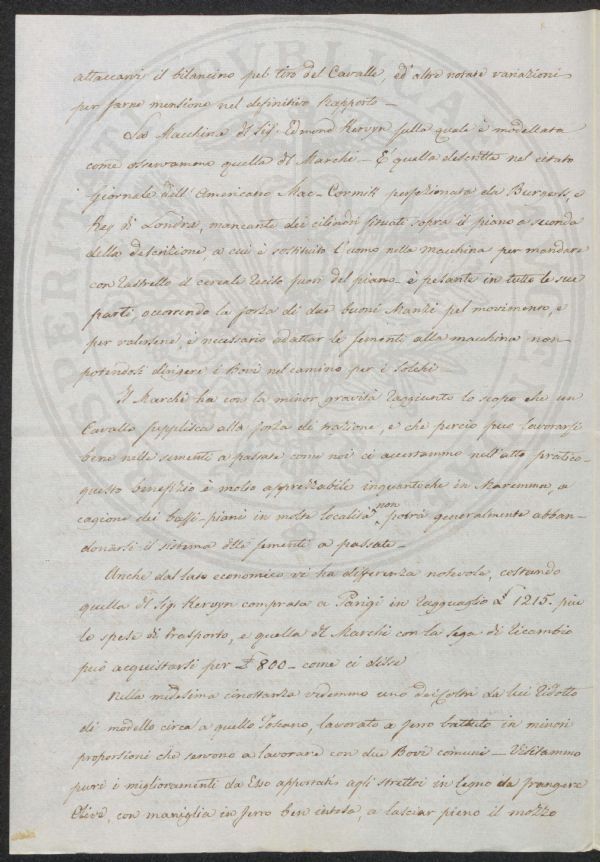 attaccarvi il bilancino pel tiro del Cavallo, ed altre notate variazioni
per farne menzione nel definitivo Rapporto_
La Macchina del Sig. Edmond Kervyn sulla quale è modellata
come osservammo quella del Marchi_ È quella descritta nel citato
Giornale dell'Americano Mac-Cormik perfezionata da Burgess, e
Key di Londra, mancante dei cilindri situati sopra il piano a seconda
della descrizione, a cui è sostituito l'uomo nella macchina per mandare
con rastrello il cereale reciso fuori del piano_ è pesante in tutte le sue
parti, occorrendo la forza di due buoni Manzi pel movimento, e
per valersene è necessario adattar le sementi alla macchina non
potendosi dirigere i Bovi nel camino per i Solchi_
Il Marchi ha con la minor gravità raggiunto lo scopo che un
Cavallo supplisca alla forza di trazione, e che perciò può lavorarsi
bene nelle sementi a passate come noi ci accertammo nell'atto pratico_
questo benefizio è molto apprezzabile inquantoche in Maremma, a
cagione dei bassi-piani in molte località non potrà generalmente abban-
donarsi il sistema delle sementi a passate_
Anche dal lato economico vi ha differenza notevole, costando
quella del Sig. Kervyn comprata a Parigi in ragguaglio £ 1215. più
le spese di trasporto, e quella del Marchi con la sega di ricambio
può acquistarsi per £ 800_ come ci disse
Nella medesima circostanza vedemmo uno dei Coltri da lui ridotto
di modello circa a quello Toscano, lavorato a ferro battuto in minori
proporzioni che servono a lavorare con due Bovi comuni_ Visitammo
pure i miglioramenti da Esso apportati agli strettoi in legno da frangere
Olive, con maniglia in ferro ben intesa, a lasciar pieno il mozzo